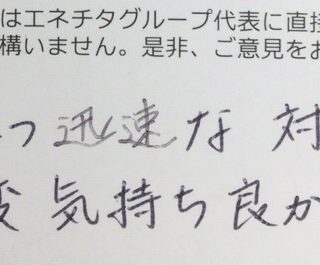 はエネチタグループ代表に直接
構いません。是非、ご意見をお
つ迅速な対
気持ち良か